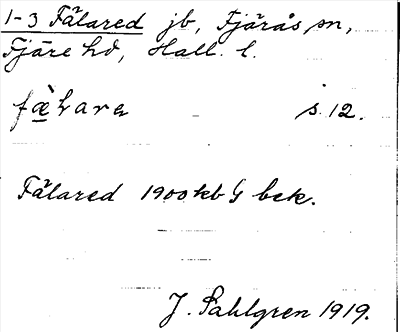 1-3 Fälared jb, Fjärås sn,
Fjäre hd, Hall. l.
fæ̀lara s. 12.
Fälared 1900 kb G bek.
J. Sahlgren 1919.